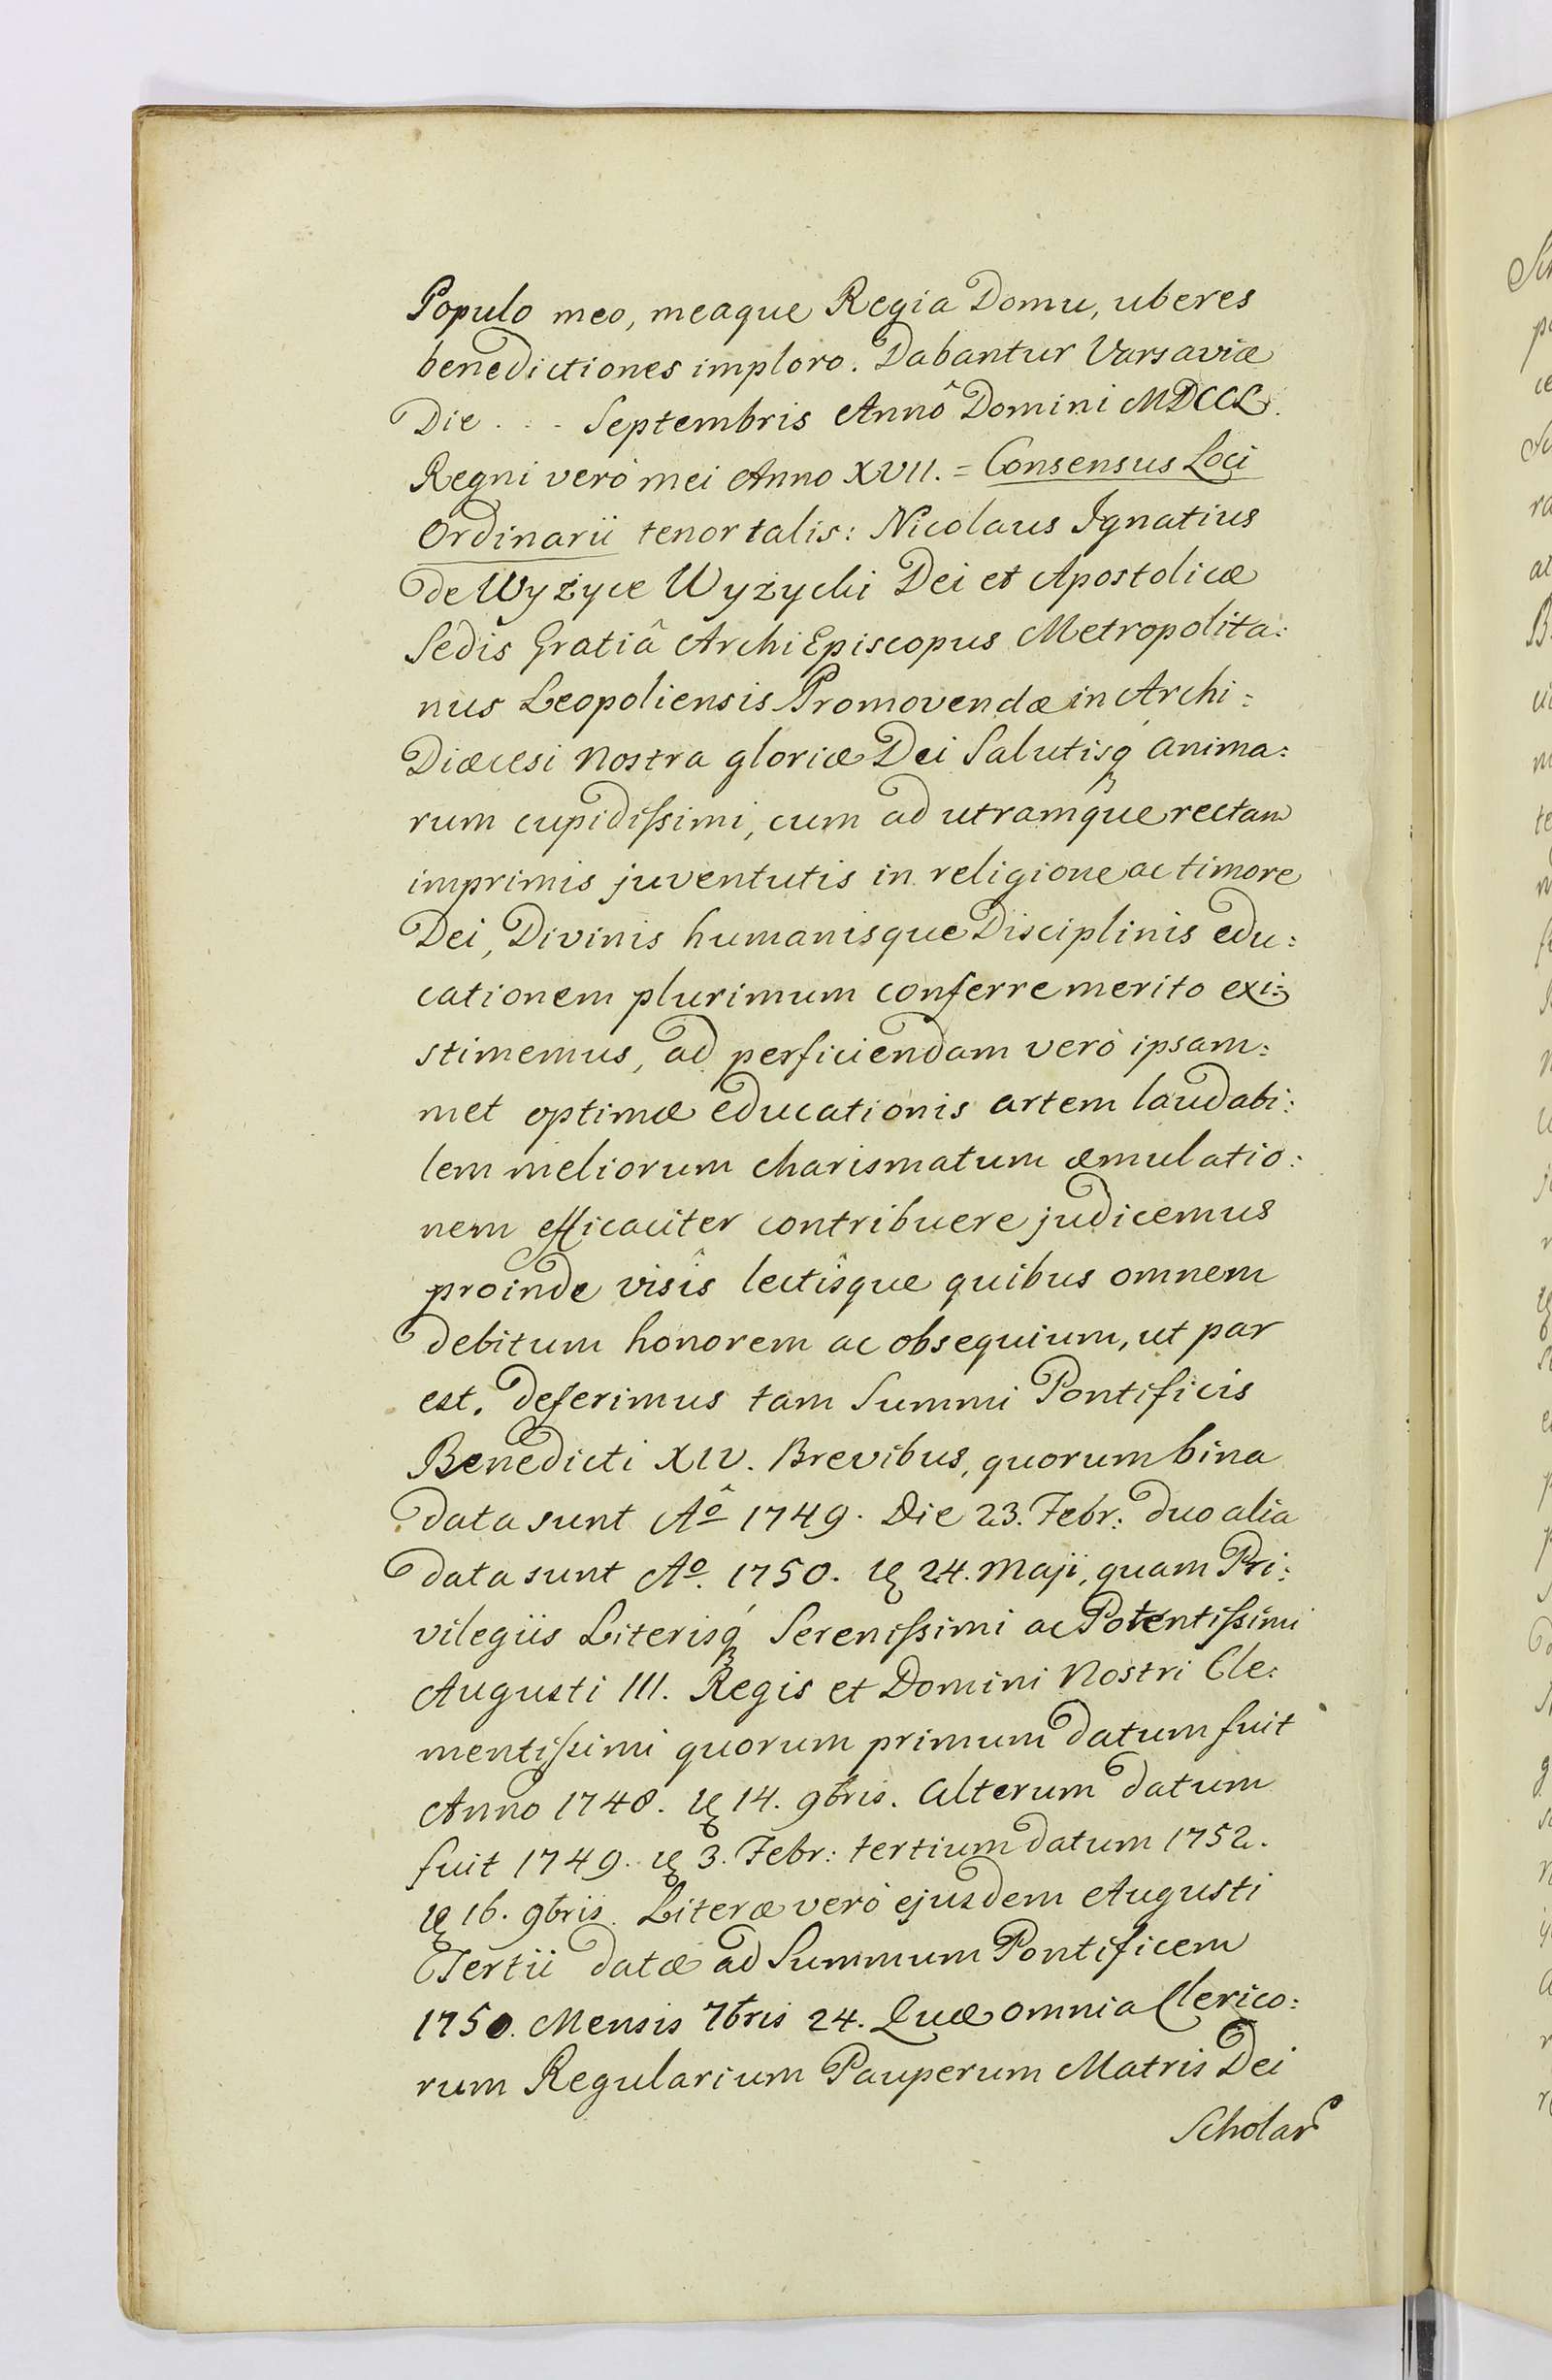 Populo meo, meaque Regia Domu, uberes
benedictiones imploro. Dabantur Varsaviæ
Die . . . Septembris Annô Domini MDCCL.
Regni verò mei Anno XVII. = Consensus Loci
Ordinarii tenor talis: Nicolaus Ignatius
de Wyżyce Wyżycki Dei et Apostolicæ
Sedis Gratiâ ArchiEpiscopus Metropolita:
nus Leopoliensis Promovendæ in Archi:
Diæcesi Nostra gloriæ Dei Salutisq́ʒ anima:
rum cupidiſsimi, cum ad utramque rectam
imprimis juventutis in religione ac timore
Dei, Divinis humanisque Disciplinis edu:
cationem plurimum conferre merito exi:
stimemus, ad perficiendam verò ipsam:
met optimæ educationis artem laudabi:
lem meliorum charismatum æmulatio:
nem efficaciter contribuere judicemus
proinde visîs lectîsque quibus omnem
debitum honorem ac obsequium, ut par
est, deferimus tam Summi Pontificis
Benedicti XIV. Brevibus, quorum bina
data sunt Aô 1749. Die 23. Febr: duo alia
data sunt Aº. 1750. 24. Maji, quam Pri:
vilegiis Literisq́ʒ Sereniſsimi ac Potentiſsimi
Augusti III. Regis et Domini Nostri Cle:
mentiſsimi quorum primum datum fuit
Anno 1748. 14. 9bris. Alterum datum
fuit 1749. 3. Febr: tertium datum 1752.
16. 9bris. Literæ verò ejusdem Augusti
Tertii datæ ad Summum Pontificem
1750. Mensis 7bris 24. Quæ omnia Clerico:
rum Regularium Pauperum Matris Dei
Scholar